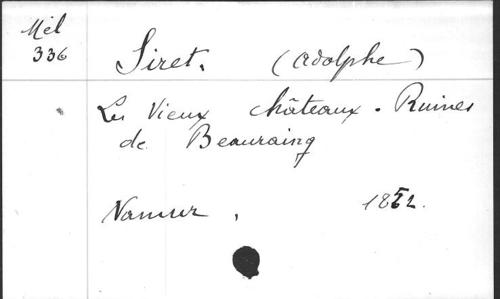 Mél
336
Siret. (Adolphe)
Les Vieux châteaux. Ruines
de Beauraing
Namur, 1852.